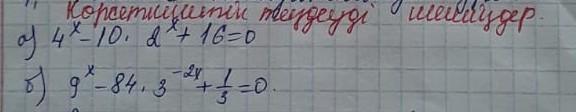 Көрсеткіштік теңдеуді шешіңдер.
а) 4^x - 10 · 2^x + 16 = 0
б) 9^x - 84 · 3^{-2x} + 1/3 = 0.